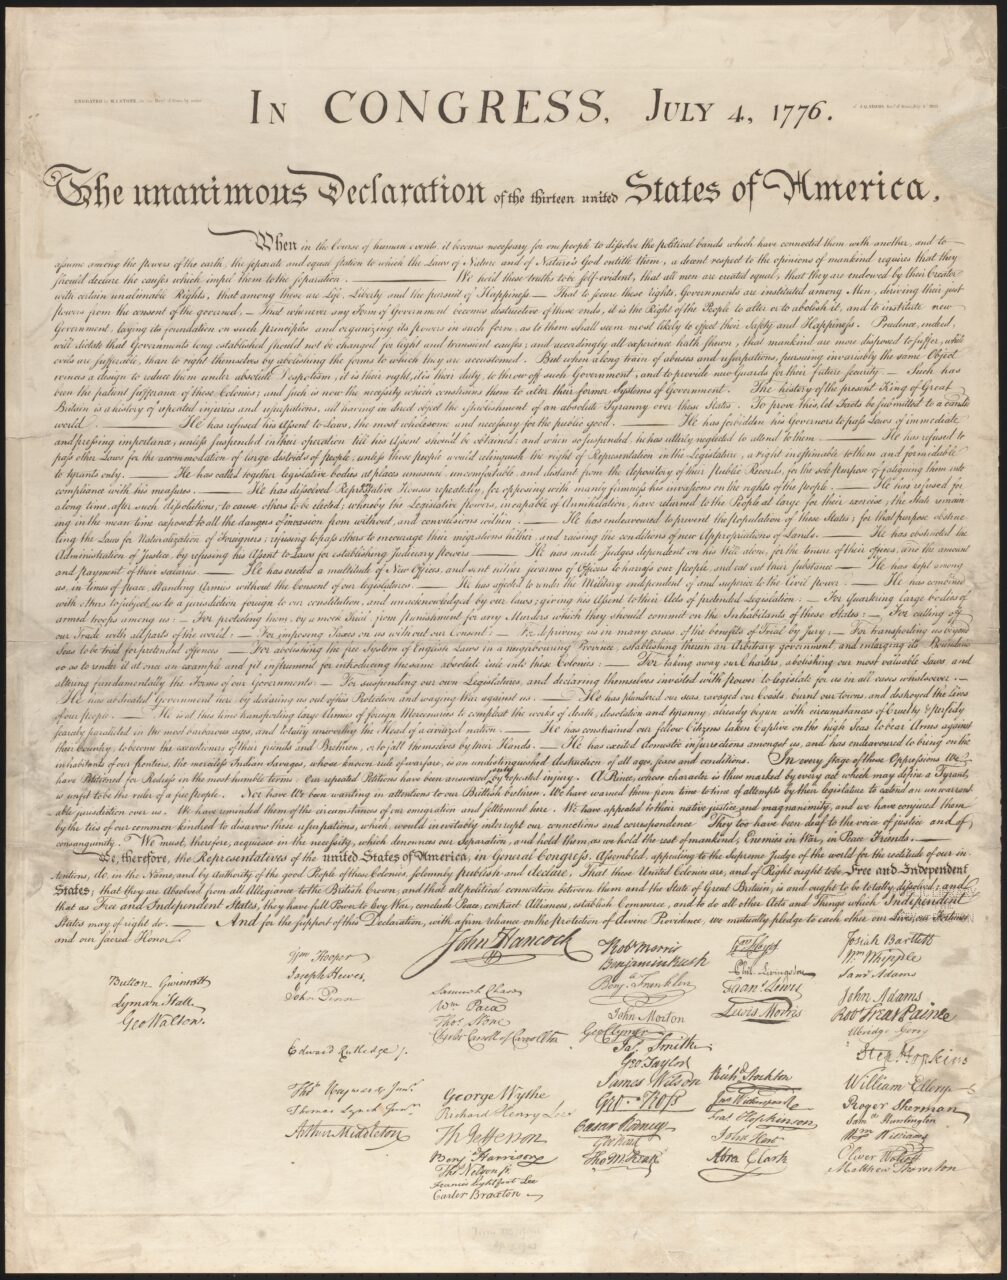 ENGRAVED by W.I.STONE, for the Dept. of State, by order
of J.Q.ADAMS, Secy. of State, July 4th 1823.
IN CONGRESS, JULY 4, 1776.
The unanimous Declaration of the thirteen united States of America,
When in the Course of human events, it becomes necessary for one people to dissolve the political bands which have connected them with another, and to
assume among the powers of the earth, the separate and equal station to which the Laws of Nature and of Nature's God entitle them, a decent respect to the opinions of mankind requires that they
should declare the causes which impel them to the separation. — We hold these truths to be self-evident, that all men are created equal, that they are endowed by their Creator
with certain unalienable Rights, that among these are Life, Liberty and the pursuit of Happiness.— That to secure these rights, Governments are instituted among Men, deriving their just
powers from the consent of the governed,— That whenever any Form of Government becomes destructive of these ends, it is the Right of the People to alter or to abolish it, and to institute new
Government, laying its foundation on such principles and organizing its powers in such form, as to them shall seem most likely to effect their Safety and Happiness. Prudence, indeed,
will dictate that Governments long established should not be changed for light and transient causes; and accordingly all experience hath shewn, that mankind are more disposed to suffer, while
evils are sufferable, than to right themselves by abolishing the forms to which they are accustomed. But when a long train of abuses and usurpations, pursuing invariably the same Object
evinces a design to reduce them under absolute Despotism, it is their right, it is their duty, to throw off such Government, and to provide new Guards for their future security.— Such has
been the patient sufferance of these Colonies; and such is now the necessity which constrains them to alter their former Systems of Government. The history of the present King of Great
Britain is a history of repeated injuries and usurpations, all having in direct object the establishment of an absolute Tyranny over these States. To prove this, let Facts be submitted to a candid
world. — He has refused his Assent to Laws, the most wholesome and necessary for the public good. — He has forbidden his Governors to pass Laws of immediate
and pressing importance, unless suspended in their operation till his Assent should be obtained; and when so suspended, he has utterly neglected to attend to them. — He has refused to
pass other Laws for the accommodation of large districts of people, unless those people would relinquish the right of Representation in the Legislature, a right inestimable to them and formidable
to tyrants only. — He has called together legislative bodies at places unusual, uncomfortable, and distant from the depository of their public Records, for the sole purpose of fatiguing them into
compliance with his measures. — He has dissolved Representative Houses repeatedly, for opposing with manly firmness his invasions on the rights of the people. — He has refused for
a long time, after such dissolutions, to cause others to be elected; whereby the Legislative powers, incapable of Annihilation, have returned to the People at large for their exercise; the State remain
ing in the mean time exposed to all the dangers of invasion from without, and convulsions within. — He has endeavoured to prevent the population of these States; for that purpose obstruc
ting the Laws for Naturalization of Foreigners; refusing to pass others to encourage their migrations hither, and raising the conditions of new Appropriations of Lands. — He has obstructed the
Administration of Justice, by refusing his Assent to Laws for establishing Judiciary powers. — He has made Judges dependent on his Will alone, for the tenure of their offices, and the amount
and payment of their salaries. — He has erected a multitude of New Offices, and sent hither swarms of Officers to harrass our people, and eat out their substance. — He has kept among
us, in times of peace, Standing Armies without the Consent of our legislatures. — He has affected to render the Military independent of and superior to the Civil power. — He has combined
with others to subject us to a jurisdiction foreign to our constitution, and unacknowledged by our laws; giving his Assent to their Acts of pretended Legislation: — For Quartering large bodies of
armed troops among us: — For protecting them, by a mock Trial, from punishment for any Murders which they should commit on the Inhabitants of these States: — For cutting off
our Trade with all parts of the world: — For imposing Taxes on us without our Consent: — For depriving us in many cases, of the benefits of Trial by Jury: — For transporting us beyond
Seas to be tried for pretended offences — For abolishing the free System of English Laws in a neighbouring Province, establishing therein an Arbitrary government, and enlarging its Boundaries
so as to render it at once an example and fit instrument for introducing the same absolute rule into these Colonies: — For taking away our Charters, abolishing our most valuable Laws, and
altering fundamentally the Forms of our Governments: — For suspending our own Legislatures, and declaring themselves invested with power to legislate for us in all cases whatsoever. —
He has abdicated Government here, by declaring us out of his Protection and waging War against us. — He has plundered our seas, ravaged our Coasts, burnt our towns, and destroyed the lives
of our people. — He is at this time transporting large Armies of foreign Mercenaries to compleat the works of death, desolation and tyranny, already begun with circumstances of Cruelty & perfidy
scarcely paralleled in the most barbarous ages, and totally unworthy the Head of a civilized nation. — He has constrained our fellow Citizens taken Captive on the high Seas to bear Arms against
their Country, to become the executioners of their friends and Brethren, or to fall themselves by their Hands. — He has excited domestic insurrections amongst us, and has endeavoured to bring on the
inhabitants of our frontiers, the merciless Indian Savages, whose known rule of warfare, is an undistinguished destruction of all ages, sexes and conditions. In every stage of these Oppressions We
have Petitioned for Redress in the most humble terms: Our repeated Petitions have been answered only by repeated injury. A Prince, whose character is thus marked by every act which may define a Tyrant,
is unfit to be the ruler of a free people. Nor have We been wanting in attentions to our Brittish brethren. We have warned them from time to time of attempts by their legislature to extend an unwarrant
able jurisdiction over us. We have reminded them of the circumstances of our emigration and settlement here. We have appealed to their native justice and magnanimity, and we have conjured them
by the ties of our common kindred to disavow these usurpations, which, would inevitably interrupt our connections and correspondence. They too have been deaf to the voice of justice and of
consanguinity. We must, therefore, acquiesce in the necessity, which denounces our Separation, and hold them, as we hold the rest of mankind, Enemies in War, in Peace Friends. —
We, therefore, the Representatives of the united States of America, in General Congress, Assembled, appealing to the Supreme Judge of the world for the rectitude of our in
tentions, do, in the Name, and by Authority of the good People of these Colonies, solemnly publish and declare, That these United Colonies are, and of Right ought to be Free and Independent
States; that they are Absolved from all Allegiance to the British Crown, and that all political connection between them and the State of Great Britain, is and ought to be totally dissolved; and
that as Free and Independent States, they have full Power to levy War, conclude Peace, contract Alliances, establish Commerce, and to do all other Acts and Things which Independent
States may of right do. — And for the support of this Declaration, with a firm reliance on the protection of divine Providence, we mutually pledge to each other our Lives, our Fortunes
and our sacred Honor.
Button Gwinnett
Lyman Hall
Geo Walton.
Wm Hooper
Joseph Hewes,
John Penn
Edward Rutledge /.
Thos Heyward Junr.
Thomas Lynch Junr.
Arthur Middleton
John Hancock
Samuel Chase
Wm Paca
Thos. Stone
Charles Carroll of Carrollton
George Wythe
Richard Henry Lee
Th Jefferson
Benja Harrison
Thos Nelson jr.
Francis Lightfoot Lee
Carter Braxton
Robt Morris
Benjamin Rush
Benja. Franklin
John Morton
Geo Clymer
Jas. Smith
Geo. Taylor
James Wilson
Geo. Ross
Caesar Rodney
Geo Read
Tho M:Kean
Wm Floyd
Phil. Livingston
Frans. Lewis
Lewis Morris
Richd. Stockton
Jno Witherspoon
Fras. Hopkinson
John Hart
Abra Clark
Josiah Bartlett
Wm Whipple
Saml Adams
John Adams
Robt Treat Paine
Elbridge Gerry
Step Hopkins
William Ellery
Roger Sherman
Saml Huntington
Wm Williams
Oliver Wolcott
Matthew Thornton